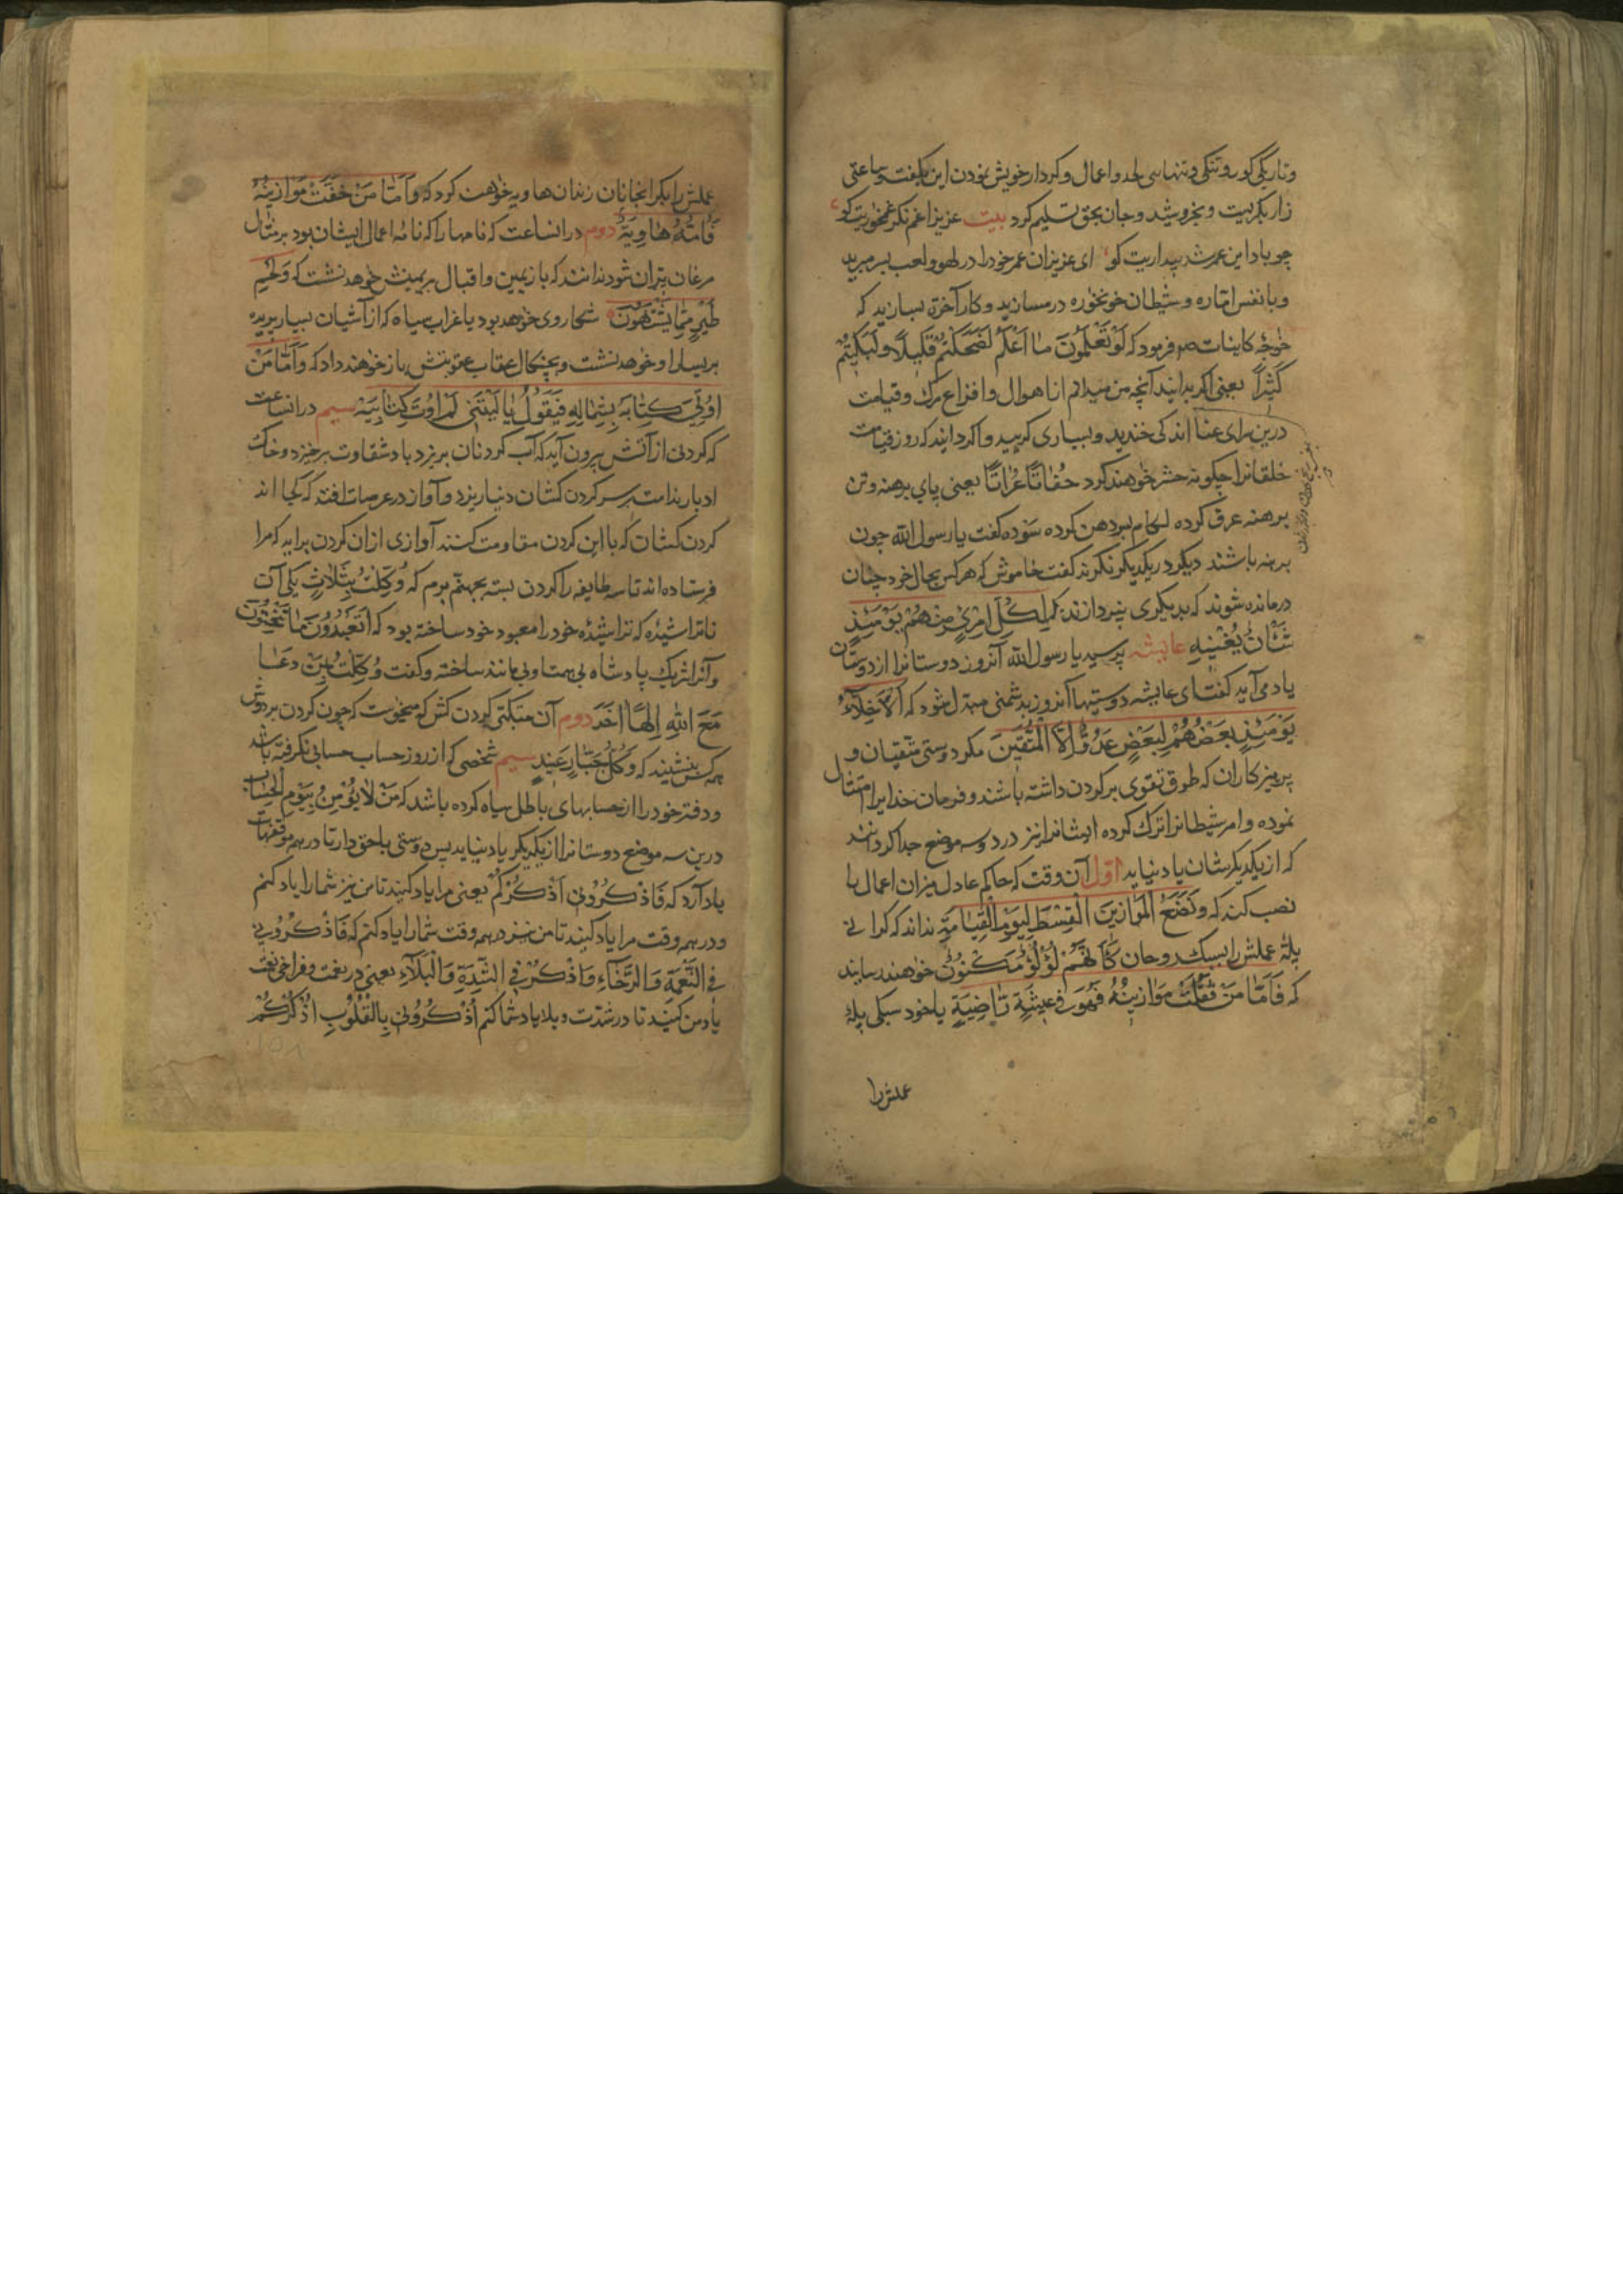 و تاریکی گور و تنگی و تنهایی لحد و اعمال و کردار خویش نمودن این بگفت و ساعتی
زار بگریست و بخروشید و جان بحق تسلیم کرد بیت عزیزا غم نکر غمخوریت کو
چو باد این عمر شد بیداریت کو ای عزیزان عمر خود را در لهو و لعب بسر مبرید
و با نفس اماره و شیطان خونخوره در مسازید و کار آخرة بسازید که
خواجۀ کاینات صم فرمود که لَوْ تَعْلَمُونَ مَا اَعْلَمُ لَضَحِكْتُمْ قَلِيلًا وَلَبَكَيْتُمْ
كَثِيرًا یعنی اکر بدانید آنچه من میدانم از اهوال و افزاع مرک و قیامت
درین سرای عنا اندکی خندید و بسیاری کریید و اکر دانید که روز قیامت
خلقانرا چکونه حشر خواهند کرد حُفَاتًا عُرَاتًا یعنی پای برهنه و تن
برهنه عرق کرده لکام بر دهن کرده سَوده کفت یا رسول الله چون
برهنه باشند دیکر در یکدیکر نکرند کفت خاموش که هر کس بحال خود چنان
درمانده شوند که بدیکری نپردازند که لِكُلِّ امْرِئٍ مِنْهُمْ يَوْمَئِذٍ
شَأْنٌ يُغْنِيهِ عایشه پرسید یا رسول الله آنروز دوستانرا از دوستان
یاد می آید کفت ای عایشه دوستیها آنروز بدشمنی مبدل شود که اَلْاَخِلَّاءُ
يَوْمَئِذٍ بَعْضُهُمْ لِبَعْضٍ عَدُوٌّ اِلَّا الْمُتَّقِينَ مکر دوستی متقیان و
پرهیزکاران که طوق تقوی بر کردن داشته باشند و فرمان خدایرا امتثال
نموده و امر شیطانرا ترک کرده ایشانرا نیز در دو سه موضع جدا کردانند
که از یکدیکرشان یاد نیاید اوّل آن وقت که حاکم عادل میزان اعمال را
نصب کند که وَنَضَعُ الْمَوَازِينَ الْقِسْطَ لِيَوْمِ الْقِيَامَةِ نداند که کرانی
پلۀ عملش را بسبک روحان كَاَنَّهُمْ لُؤْلُؤٌ مَكْنُونٌ خواهند رسانید
که فَاَمَّا مَنْ ثَقُلَتْ مَوَازِينُهُ فَهُوَ فِي عِيشَةٍ رَاضِيَةٍ یا خود سبکی پلۀ
عملش را
عملش را بکرانجانان زندان هاویه خواهند کرد که وَاَمَّا مَنْ خَفَّتْ مَوَازِينُهُ
فَاُمُّهُ هَاوِيَةٌ دوم در انساعت که نامها را که نامۀ اعمال ایشان بود بر مثال
مرغان پران شود ندانند که باز یمین و اقبال بر یمینش خواهد نشست که وَلَحْمِ
طَيْرٍ مِمَّا يَشْتَهُونَ شکار وی خواهد بود یا غراب سیاه که از آشیان بسیار پریده
بر یسار او خواهد نشست و بچنکال عقاب عقوبتش باز خواهند داد که وَاَمَّا مَنْ
اُوتِيَ كِتَابَهُ بِشِمَالِهِ فَيَقُولُ يَا لَيْتَنِي لَمْ اُوتَ كِتَابِيَهْ سیم در انساعت
که کردنی از آتش بیرون آید که آب کردنان بریزد باد شقاوت برخیزد و خاک
ادبار ندامت بر سر کردن کشان دنیا ریزد و آواز در عرصات افتد که کجا اند
کردن کشان که با این کردن مقاومت کنند آوازی از ان کردن براید که مرا
فرستاده اند تا سه طایفه را کردن بسته بجهنّم برم که وُكِّلْتُ بِثَلَاثٍ یکی آن
ناتراشیده که تراشیدۀ خود را معبود خود ساخته بود که اَتَعْبُدُونَ مَا تَنْحِتُونَ
و آنرا شریک پادشاه بی همتا و بی مانند ساخته و کفت وُكِّلْتُ بِمَنْ دَعَا
مَعَ اللهِ اِلَهًا آخَرَ دوم آن متکبّر کردن کش که میخواست که چون کردن بر دوش
همه کس بنشیند که وَكُلُّ جَبَّارٍ عَنِيدٍ سیم شخصی که از روز حساب حسابی نکرفته باشد
و دفتر خود را از حسابهای باطل سیاه کرده باشد که مَنْ لَا يُؤْمِنُ بِيَوْمِ الْحِسَابِ
درین سه موضع دوستانرا از یکدیکر یاد نیاید پس دوستی با حق دار تا در همه موقفهات
یاد آرد که فَاذْكُرُونِي اَذْكُرْكُمْ یعنی مرا یاد کنید تا من نیز شما را یاد کنم
و در همه وقت مرا یاد کنید تا من نیز در همه وقت شما را یاد کنم که فَاذْكُرُونِي
فِي النِّعْمَةِ وَالرَّخَاءِ وَاَذْكُرُ فِي الشِّدَّةِ وَالْبَلَاءِ یعنی در نعمت و فراخی نعمت
یاد من کنید تا در شدّت و بلا یاد شما کنم اُذْكُرُونِي بِالْقُلُوبِ اَذْكُرْكُمْ